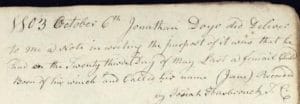 1803 October 6th Jonathan Doyo did Deliver
to me a Note in writing the purport of it was that he
had on the Twenty third Day of May Last a femail Child
Born of his wench and Called his name (Jane) Recorded
by Josiah Hasbrouck T. C.